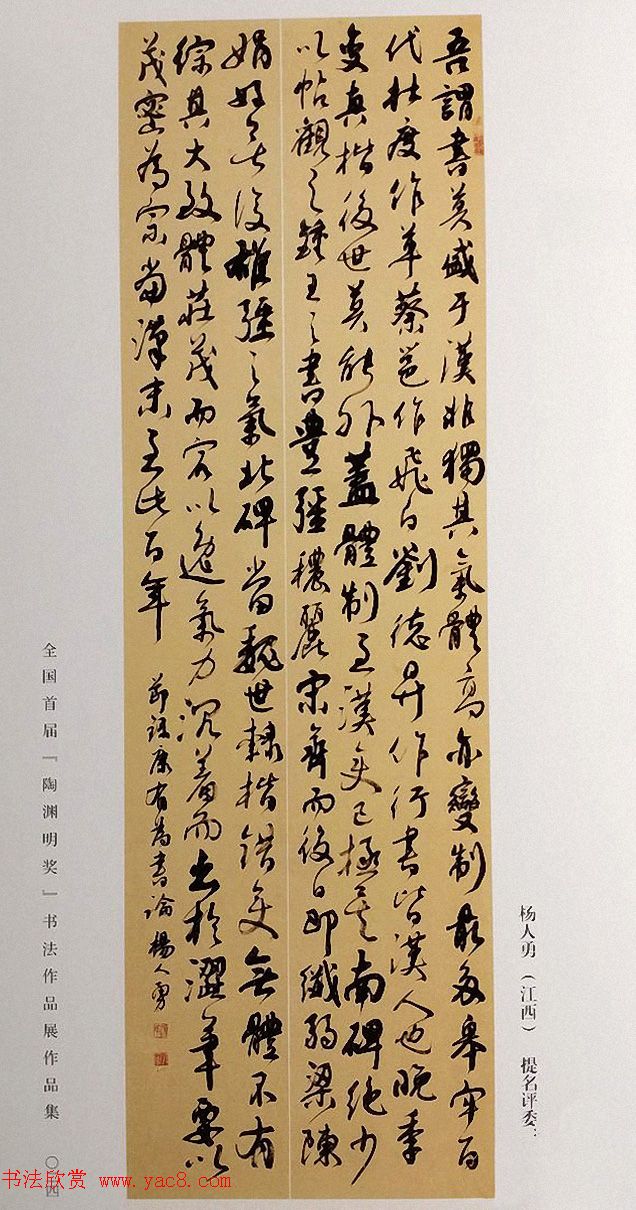 吾謂書莫盛于漢非獨其氣體高亦變制最多皋牢百
代杜度作草蔡邕作飛白劉德昇作行書皆漢人也晚季
變真楷後世莫能外蓋體制至漢變已極矣南碑絕少
以帖觀之鍾王之書豊强穠麗宋齊而後日即纖弱梁陳
娟好無復雄强之氣北碑當魏世隸楷錯變無體不有
綜其大致體莊茂而宕以逸氣力沉着而出於澀筆要以
茂密為宗當漢末至此百年
節錄康有為書論 楊人勇
杨人勇（江西） 提名评委：
全国首届『陶渊明奖』书法作品展作品集 〇四
书法欣赏 www.yac8.com